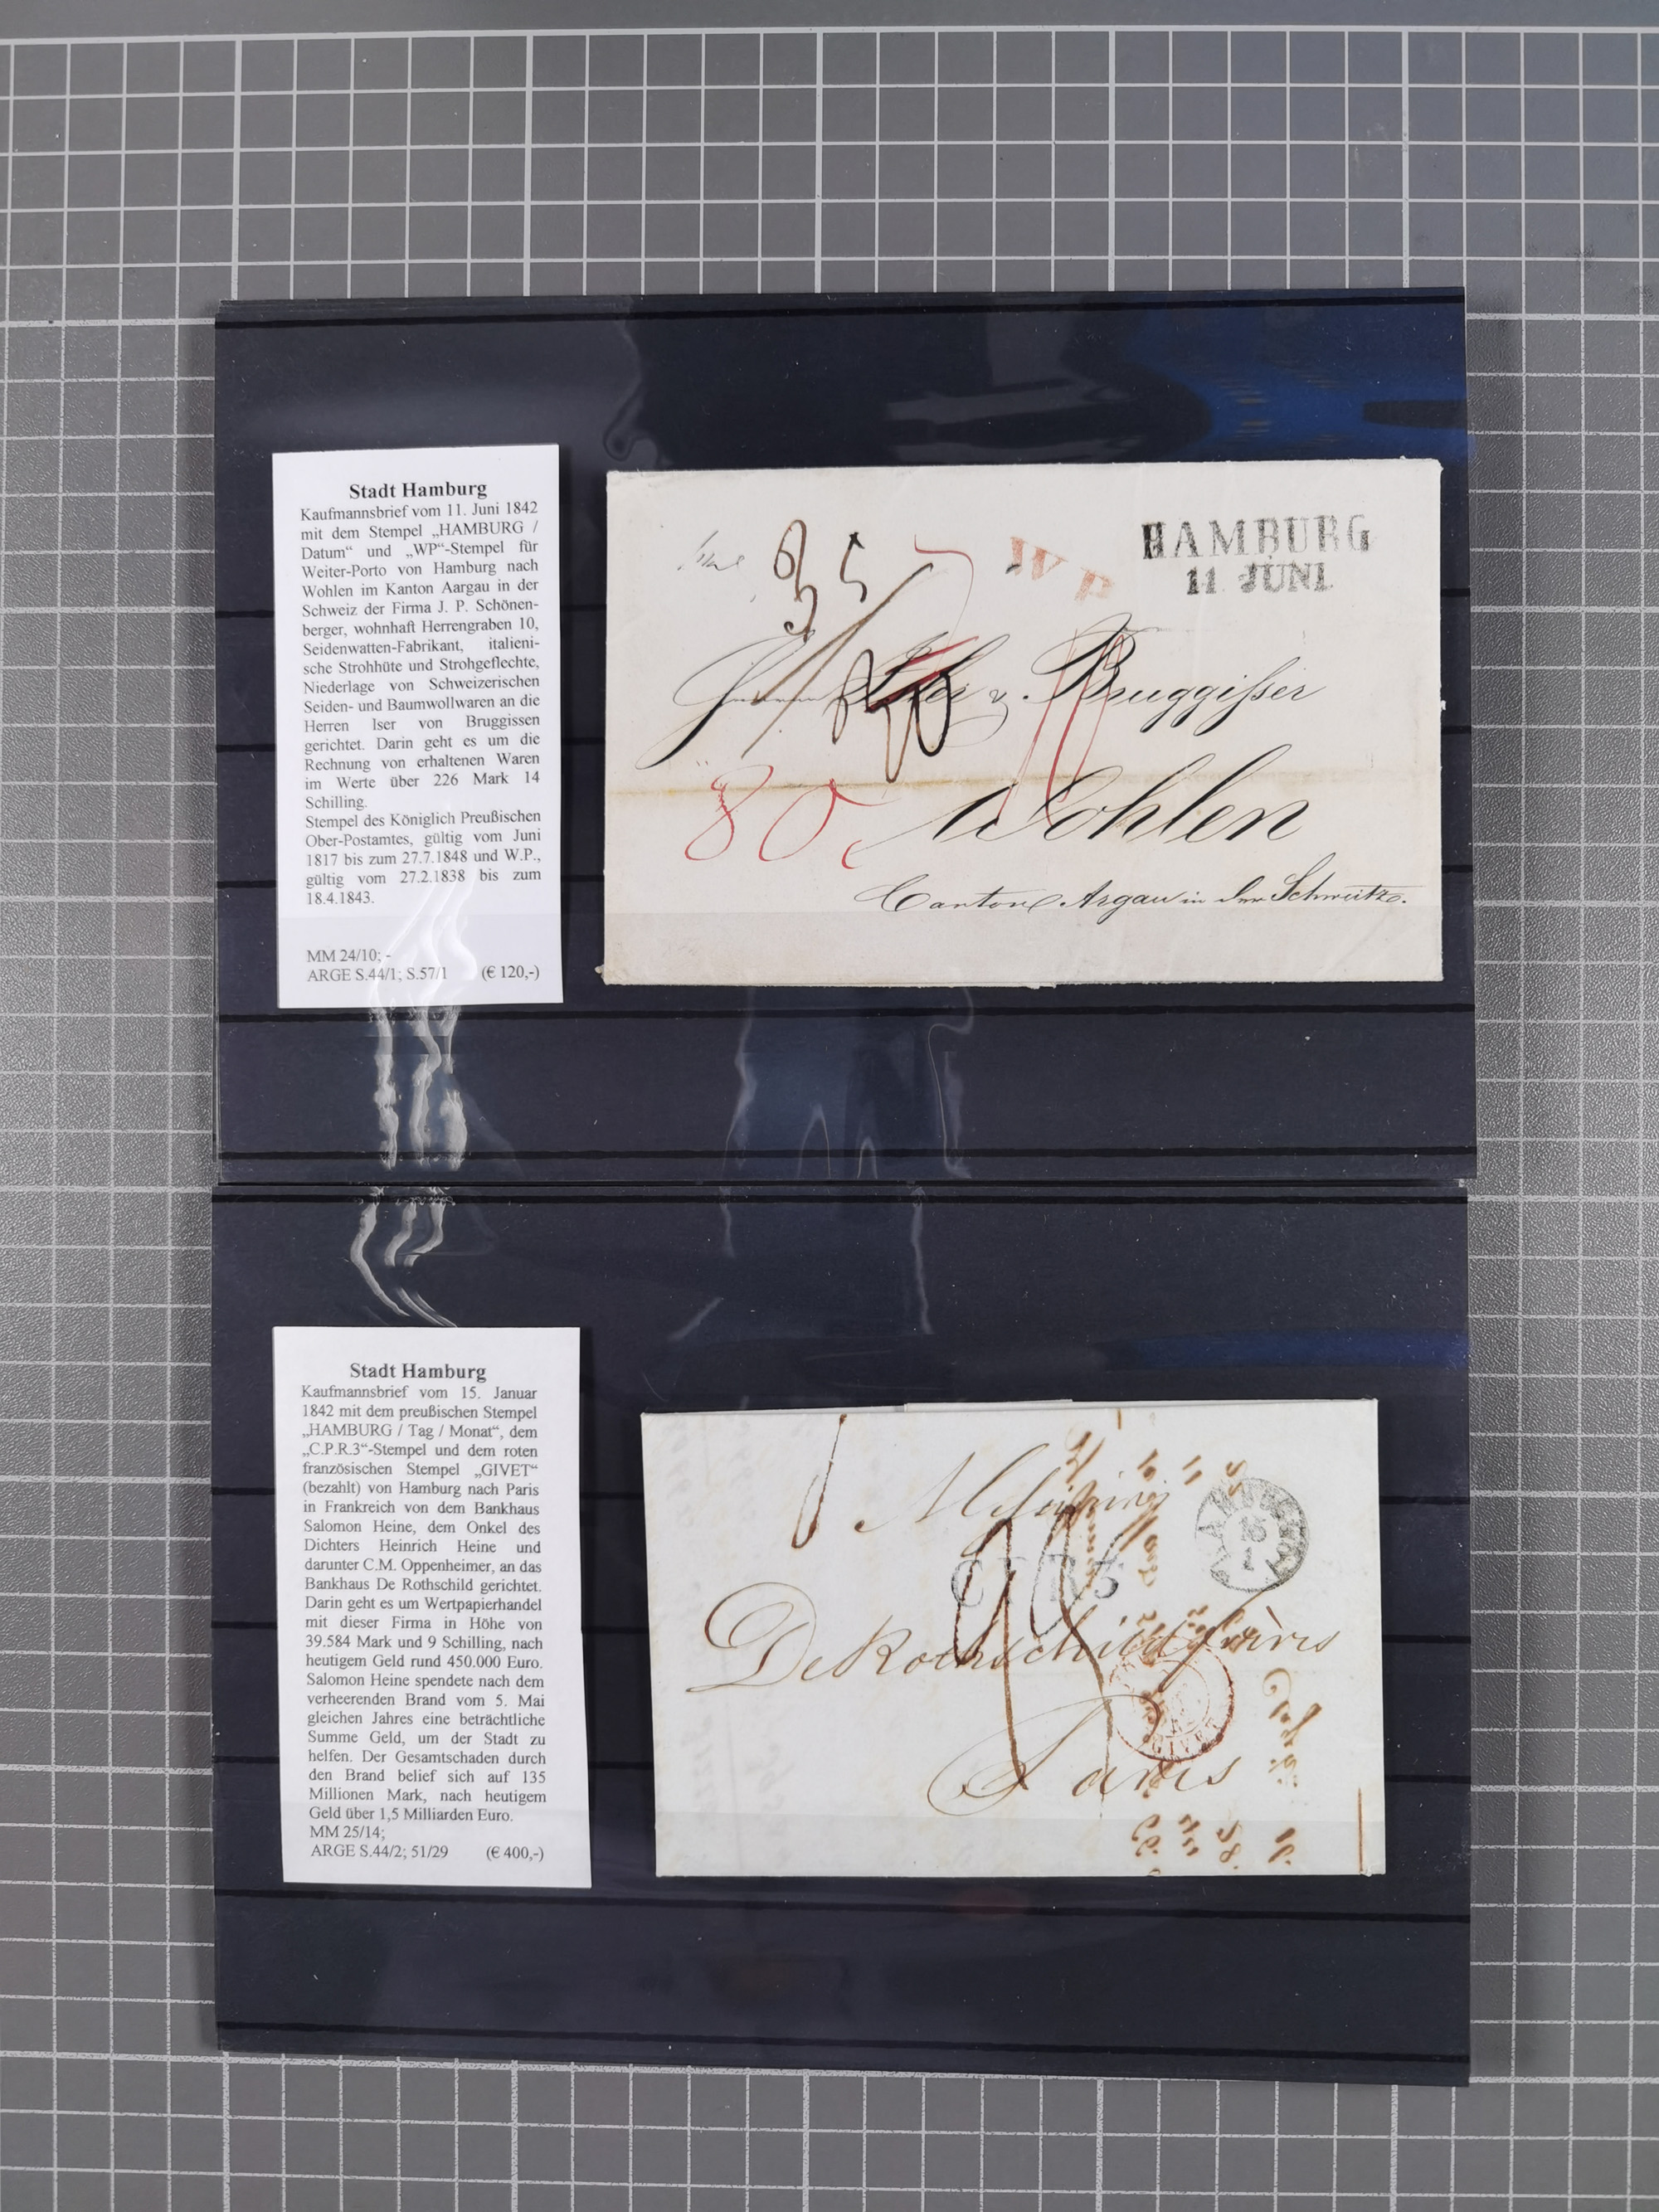 Stadt Hamburg
Kaufmannsbrief vom 11. Juni 1842
mit dem Stempel „HAMBURG /
Datum“ und „WP“-Stempel für
Weiter-Porto von Hamburg nach
Wohlen im Kanton Aargau in der
Schweiz der Firma J. P. Schönen-
berger, wohnhaft Herrengraben 10,
Seidenwatten-Fabrikant, italieni-
sche Strohhüte und Strohgeflechte,
Niederlage von Schweizerischen
Seiden- und Baumwollwaren an die
Herren Iser von Bruggissen
gerichtet. Darin geht es um die
Rechnung von erhaltenen Waren
im Werte über 226 Mark 14
Schilling.
Stempel des Königlich Preußischen
Ober-Postamtes, gültig vom Juni
1817 bis zum 27.7.1848 und W.P.,
gültig vom 27.2.1838 bis zum
18.4.1843.
MM 24/10; -
ARGE S.44/1; S.57/1 (€ 120,-)
HAMBURG
11 JUNI
W P
& Bruggisser
80
Wohlen
Canton Argau in der Schweitz.
Stadt Hamburg
Kaufmannsbrief vom 15. Januar
1842 mit dem preußischen Stempel
„HAMBURG / Tag / Monat“, dem
„C.P.R.3“-Stempel und dem roten
französischen Stempel „GIVET“
(bezahlt) von Hamburg nach Paris
in Frankreich von dem Bankhaus
Salomon Heine, dem Onkel des
Dichters Heinrich Heine und
darunter C.M. Oppenheimer, an das
Bankhaus De Rothschild gerichtet.
Darin geht es um Wertpapierhandel
mit dieser Firma in Höhe von
39.584 Mark und 9 Schilling, nach
heutigem Geld rund 450.000 Euro.
Salomon Heine spendete nach dem
verheerenden Brand vom 5. Mai
gleichen Jahres eine beträchtliche
Summe Geld, um der Stadt zu
helfen. Der Gesamtschaden durch
den Brand belief sich auf 135
Millionen Mark, nach heutigem
Geld über 1,5 Milliarden Euro.
MM 25/14;
ARGE S.44/2; 51/29 (€ 400,-)
HAMBURG
De Rothschild frères
GIVET
Paris